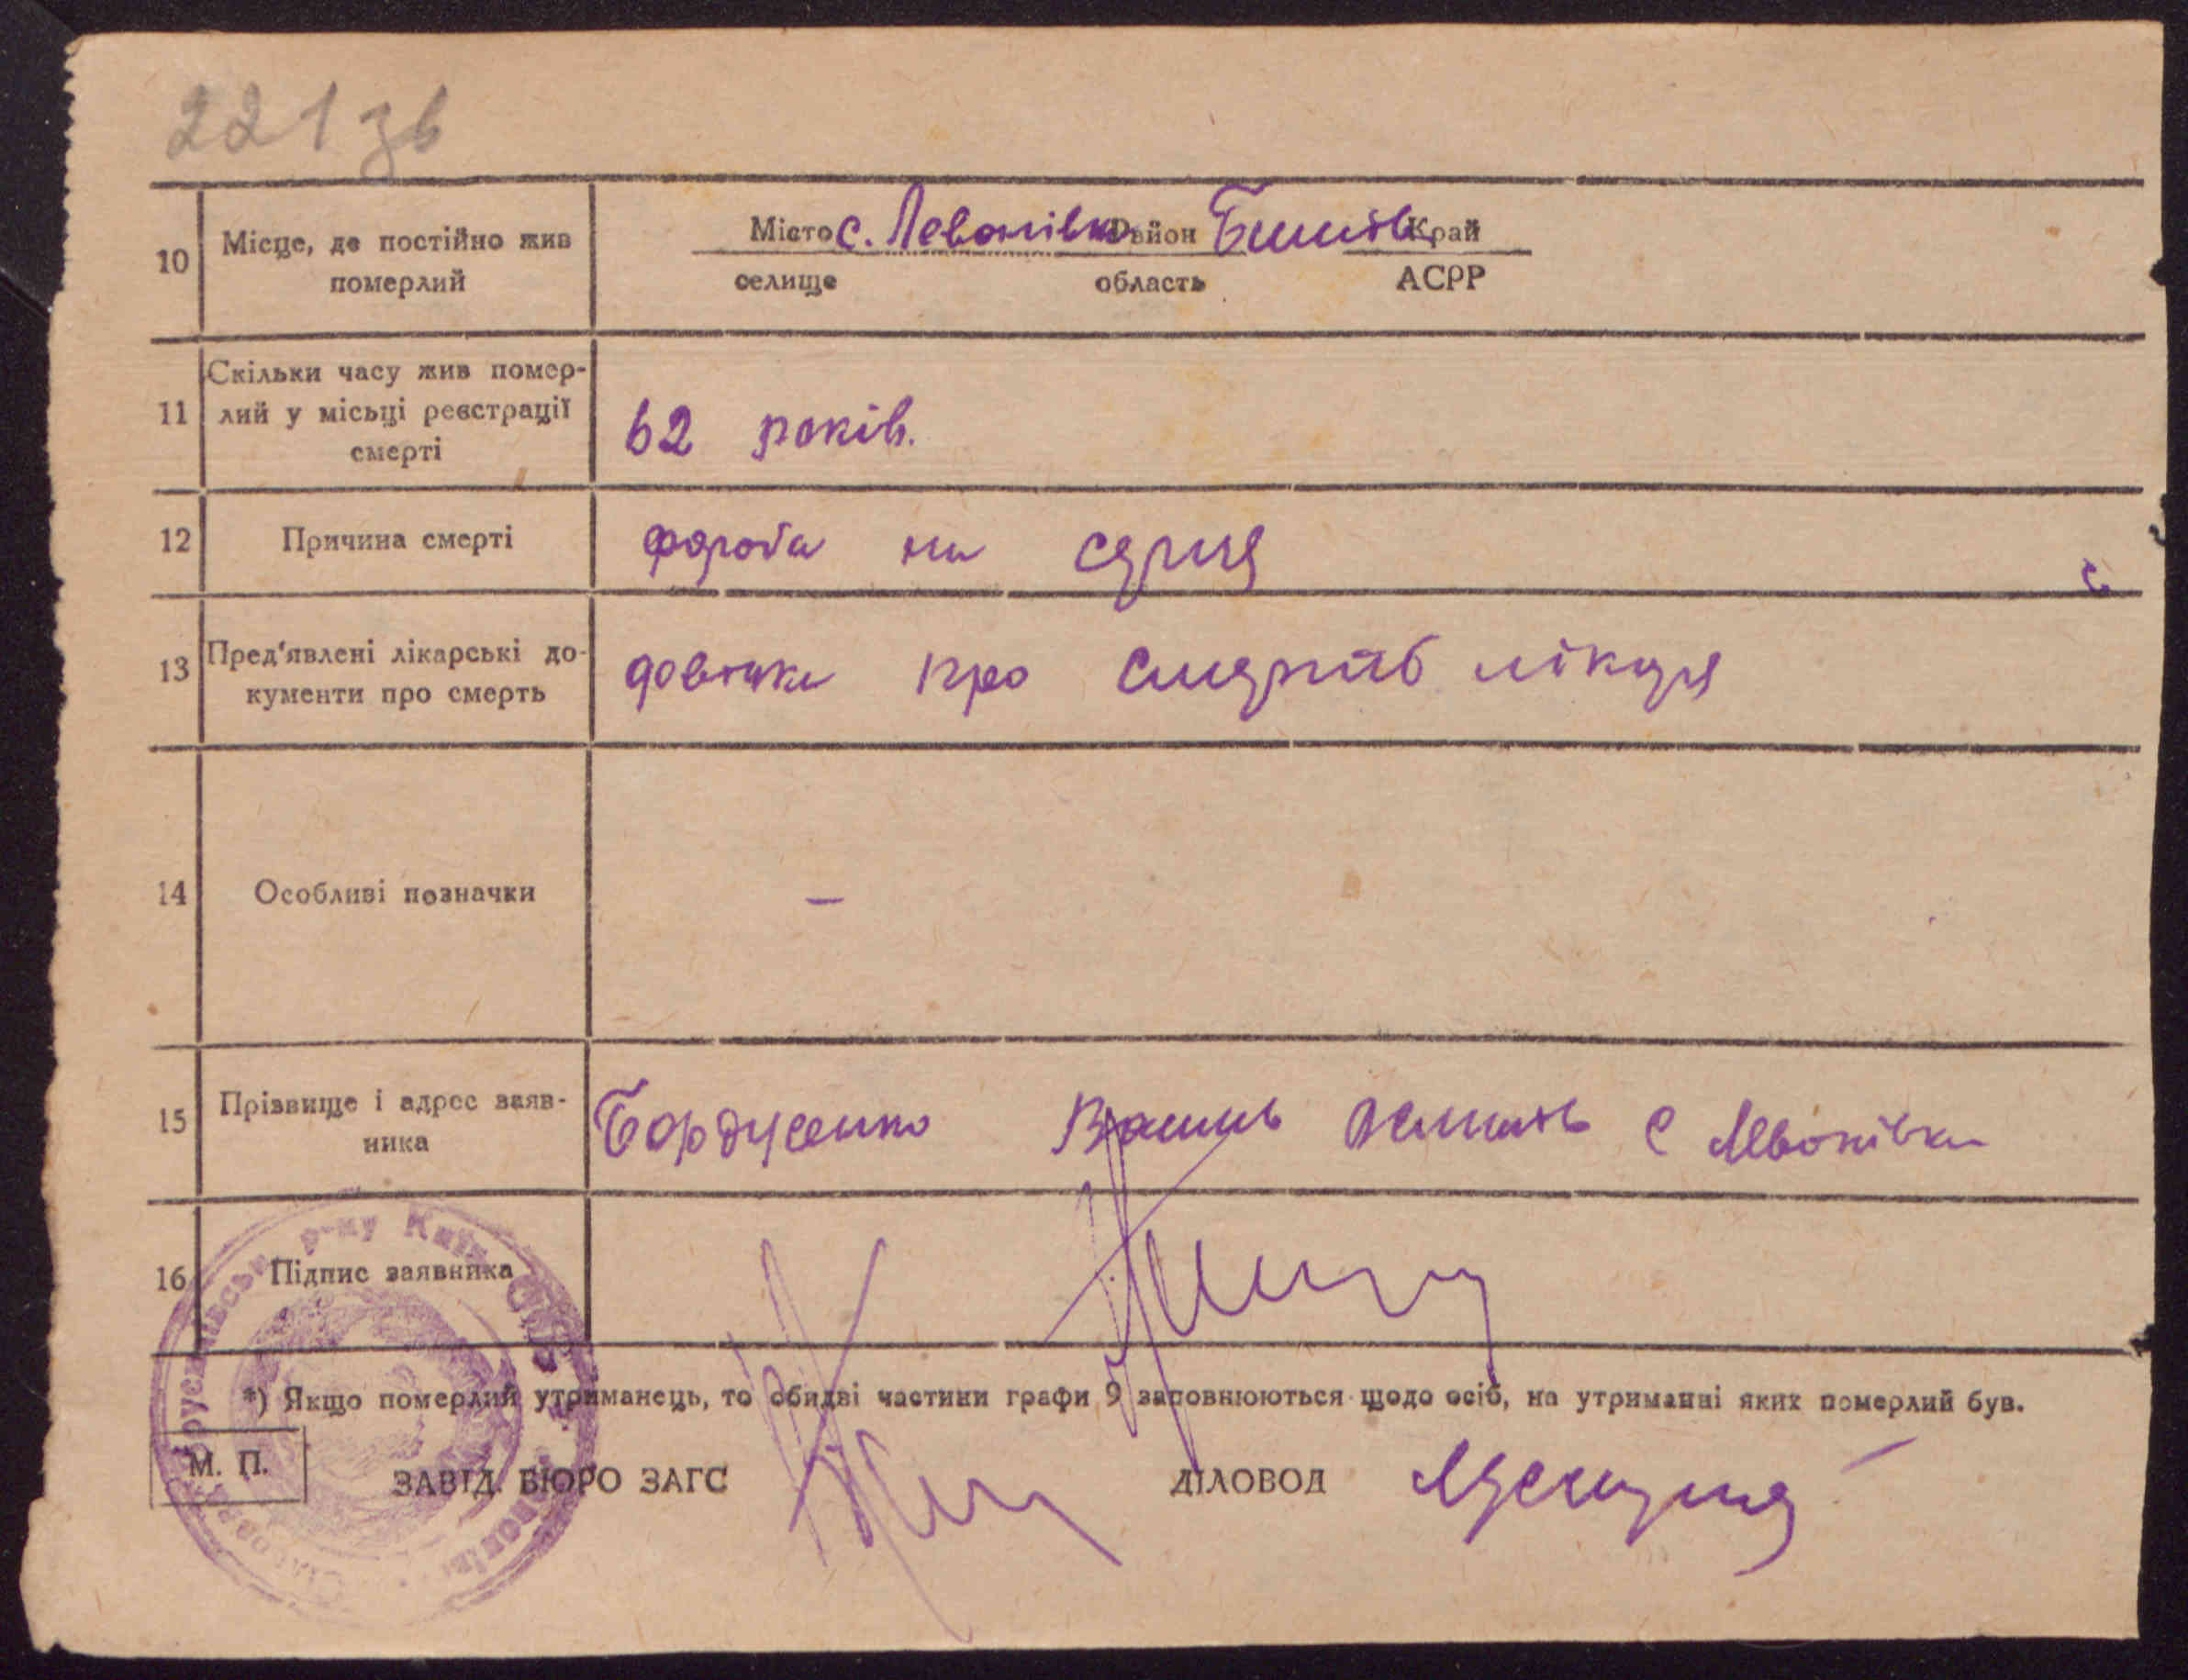 221 зв
10 Місце, де постійно жив померлий
Місто с. Леонівка Район Бишів Край
селище область АСРР
11 Скільки часу жив помер-
лий у місьці реєстрації
смерті
62 років.
12 Причина смерті
хороба на серця
13 Пред'явлені лікарські до-
кументи про смерть
довідка про смерть лікаря
14 Особливі позначки
–
15 Прізвище і адрес заяв-
ника
Бордусенко с
16 Підпис заявника
*) Якщо померлий утриманець, то обидві частини графи 9 заповнюються щодо осіб, на утриманні яких померлий був.
М. П.
ЗАВІД. БЮРО ЗАГС ДІЛОВОД